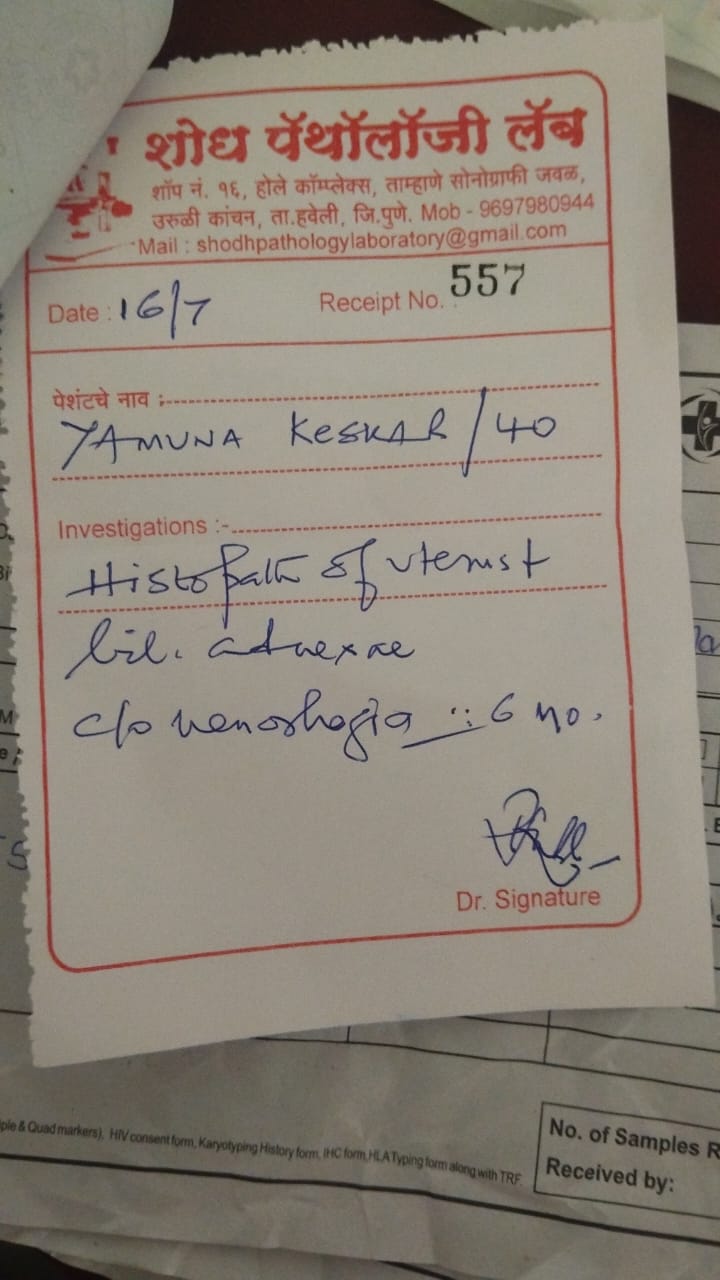 शोध पॅथॉलॉजी लॅब
शॉप नं. १६, होले कॉम्प्लेक्स, ताम्हाणे सोनोग्राफी जवळ,
उरुळी कांचन, ता.हवेली, जि.पुणे. Mob - 9697980944
Mail : shodhpathologylaboratory@gmail.com
Date : 16/7 Receipt No. 557
पेशंटचे नाव :-
YAMUNA KESKAR / 40
Investigations :-
Histopath of uterus +
bil. adnexae
c/o menorrhagia 6 mo.
Dr. Signature
ple & Quad markers), HIV consent form, Karyotyping History form, IHC form, HLA Typing form along with TRF.
No. of Samples R
Received by: